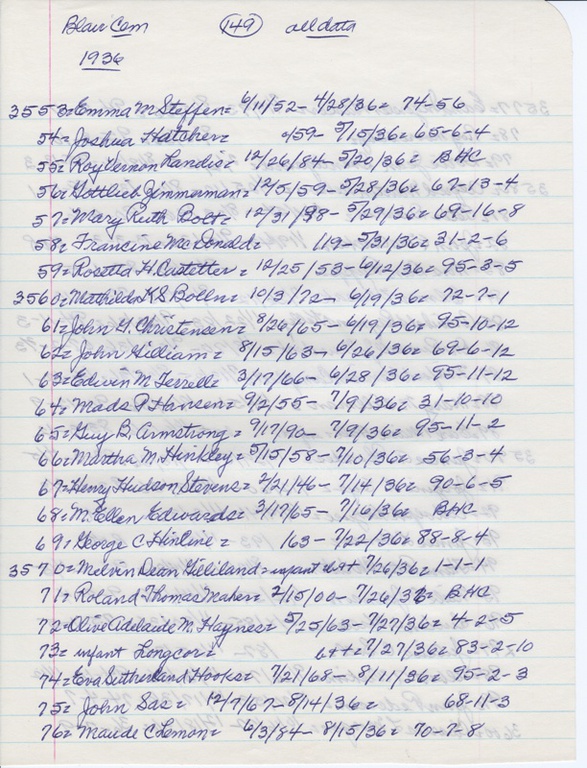 Blair Cem 149 all data
1936
3553 = Emma M Steffen = 6/11/52 - 4/28/36 = 74-56
54 = Joshua Hatcher = /59 - 5/15/36 = 65-6-4
55 = Roy Vernon Landis = 12/26/84 - 5/20/36 = BHC
56 = Gottlieb Zimmerman = 12/5/59 - 5/28/36 = 67-13-4
57 = Mary Ruth Bolt = 12/31/98 - 5/29/36 = 69-16-8
58 = Francine McDonald = 119 - 5/31/36 = 31-2-6
59 = Rosetta H. Custetter = 12/25/53 - 6/12/36 = 95-3-5
3560 = Mathilda K S Bolln = 10/3/72 - 6/19/36 = 72-7-1
61 = John G. Christensen = 8/26/65 - 6/19/36 = 95-10-12
62 = John Gilliam = 8/15/63 - 6/26/36 = 69-6-12
63 = Edwin M. Ferrell = 3/17/66 - 6/28/36 = 95-11-12
64 = Mads P. Hansen = 9/2/55 - 7/9/36 = 31-10-10
65 = Guy B. Armstrong = 9/17/90 - 7/9/36 = 95-11-2
66 = Martha M. Hinkley = 5/15/58 - 7/10/36 = 56-3-4
67 = Henry Hudson Stevens = 2/21/46 - 7/14/36 = 90-6-5
68 = M. Ellen Edwards = 3/17/65 - 7/16/36 = BHC
69 = George C Hinline = 163 - 7/22/36 = 88-8-4
3570 = Melvin Dean Gilliland = infant 7/26/36 = 1-1-1
71 = Roland Thomas Maher = 2/15/00 - 7/26/36 = BHC
72 = Olive Adelaide N. Haynes = 5/25/63 - 7/27/36 = 4-2-5
73 = infant Longcor = 7/27/36 = 83-2-10
74 = Eva Sutherland Hooks = 7/21/68 - 8/11/36 = 95-2-3
75 = John Sas = 12/7/67 - 8/14/36 = 68-11-3
76 = Maude C Lemon = 6/3/84 - 8/15/36 = 70-7-8